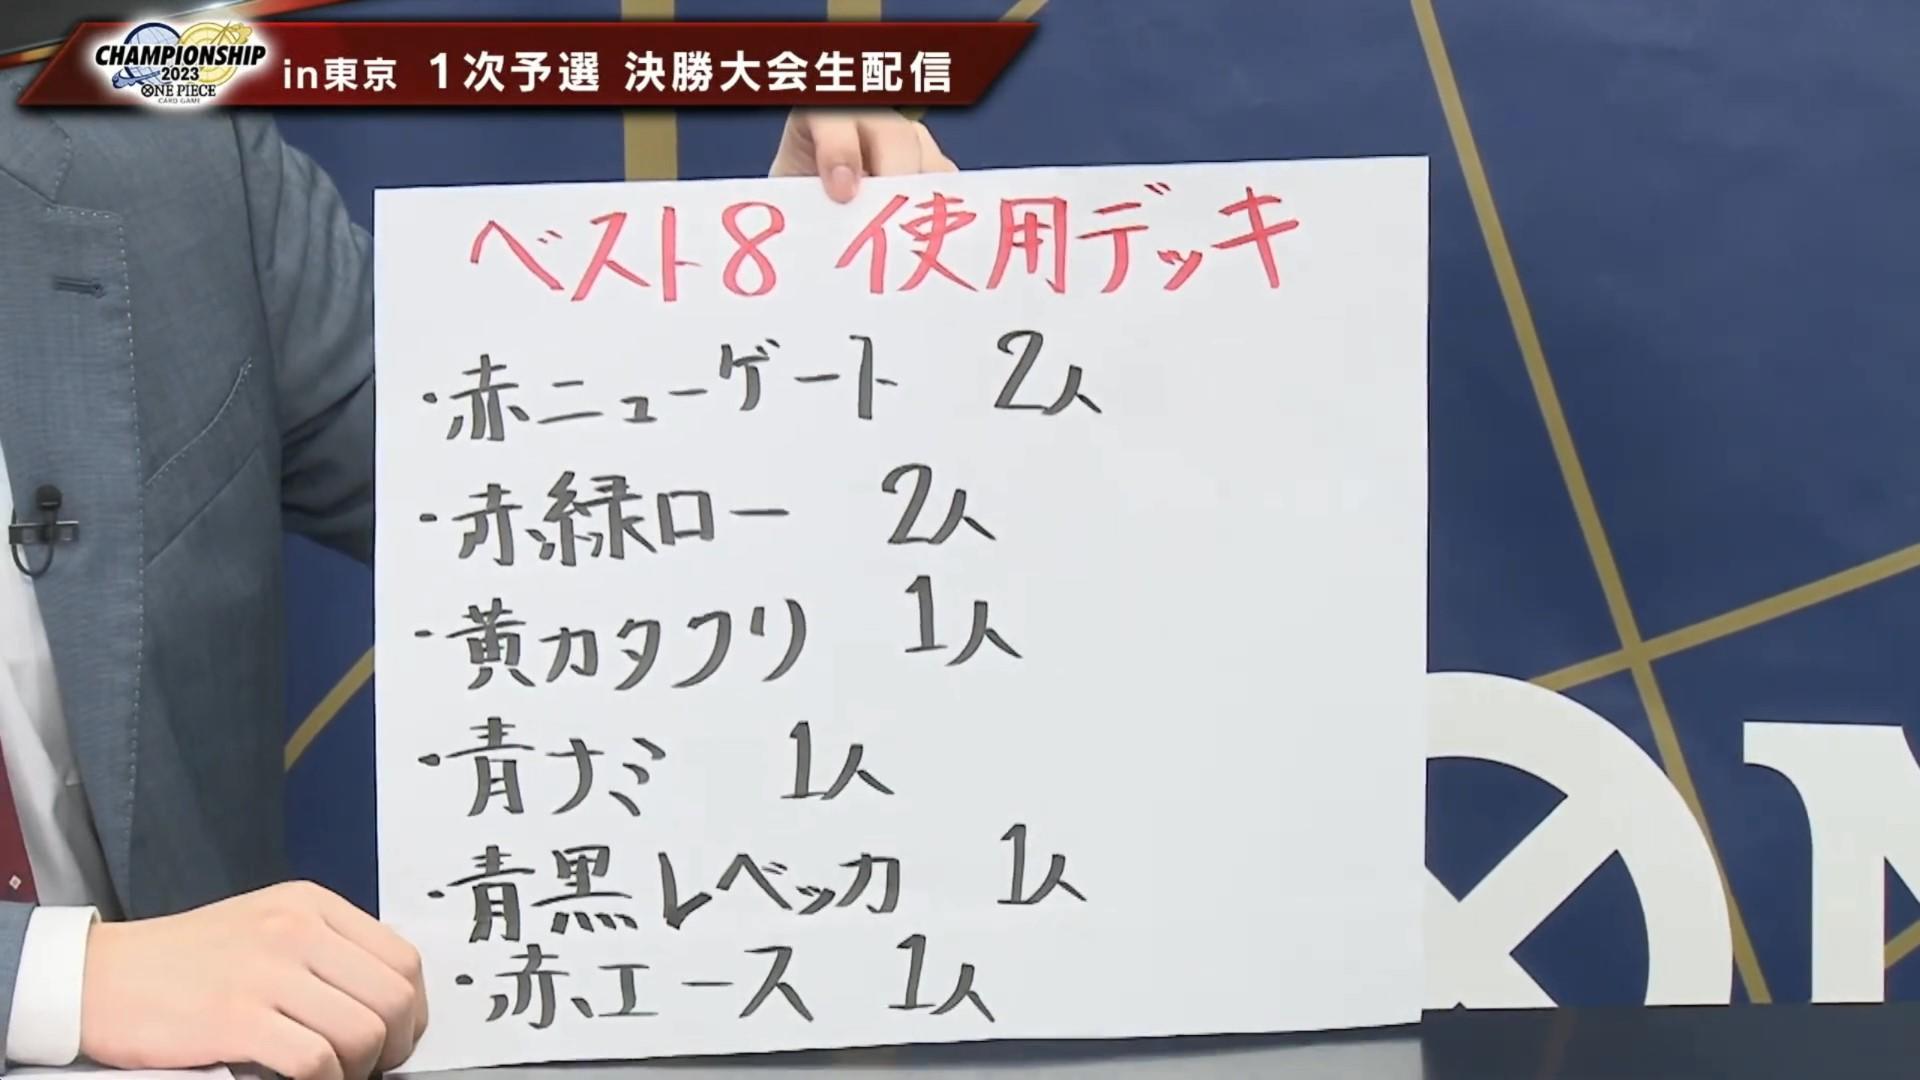 CHAMPIONSHIP
2023
ONE PIECE
CARD GAME
in東京 1次予選 決勝大会生配信
ベスト8 使用デッキ
・赤ニューゲート 2人
・赤緑ロー 2人
・黄カタクリ 1人
・青ナミ 1人
・青黒レベッカ 1人
・赤エース 1人